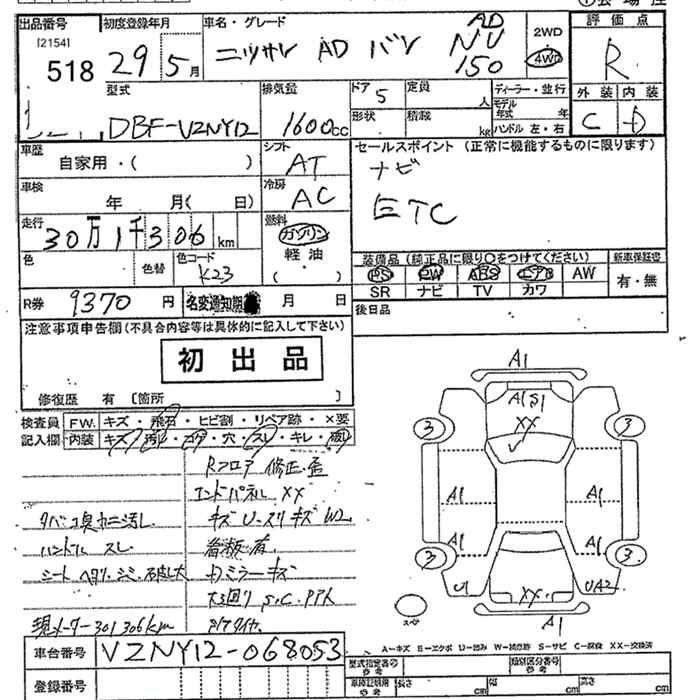 出品番号 初度登録年月 車名・グレード 2WD 評価点
[2154] AD
518 29 5月 ニッサン AD バン NV 150 4WD R
型式 排気量 ドア 5 定員 人 ディーラー・並行 外装 内装
DBF-VZNY12 1600cc 形状 積載 kg モデル年式 年 ハンドル 左・右 C D
車歴 シフト セールスポイント (正常に機能するものに限ります)
自家用・( ) AT ナビ
車検 冷房
年 月( 日) AC ETC
走行 燃料
30万1千306km ガソリン
色 色替 色コード K23 軽油 ( ・ )
装備品 (純正品に限り○をつけてください) 新車保証書
PS PW ABS エアB AW 有・無
SR ナビ TV カワ
R券 9370 円 名変通知期 月 日 後日品
注意事項申告欄(不具合内容等は具体的に記入して下さい)
初出品
修復歴 有 [箇所 ]
検査員 FW. キズ・飛石・ヒビ割・リペア跡・×要
記入欄 内装 キズ・汚レ・コゲ・穴・スレ・キレ・破レ
Rフロア 修正・歪
エンドパネル XX
キズ U・スリキズ W2
ハンドル スレ 看板有
ドアミラーキズ
現メーター301306km
車台番号 VZNY12-068053
登録番号
A1
A1 S1
XX
3 3
A1 A1
A1 A1
3 3
U1 XX UA2
スペア A1
A-キズ E-エクボ U-凹み W-補修跡 S-サビ C-腐食 XX-交換済
型式指定番号 参考 類別区分番号 参考
車庫証明用 参考 長さ cm 幅 cm 高さ cm